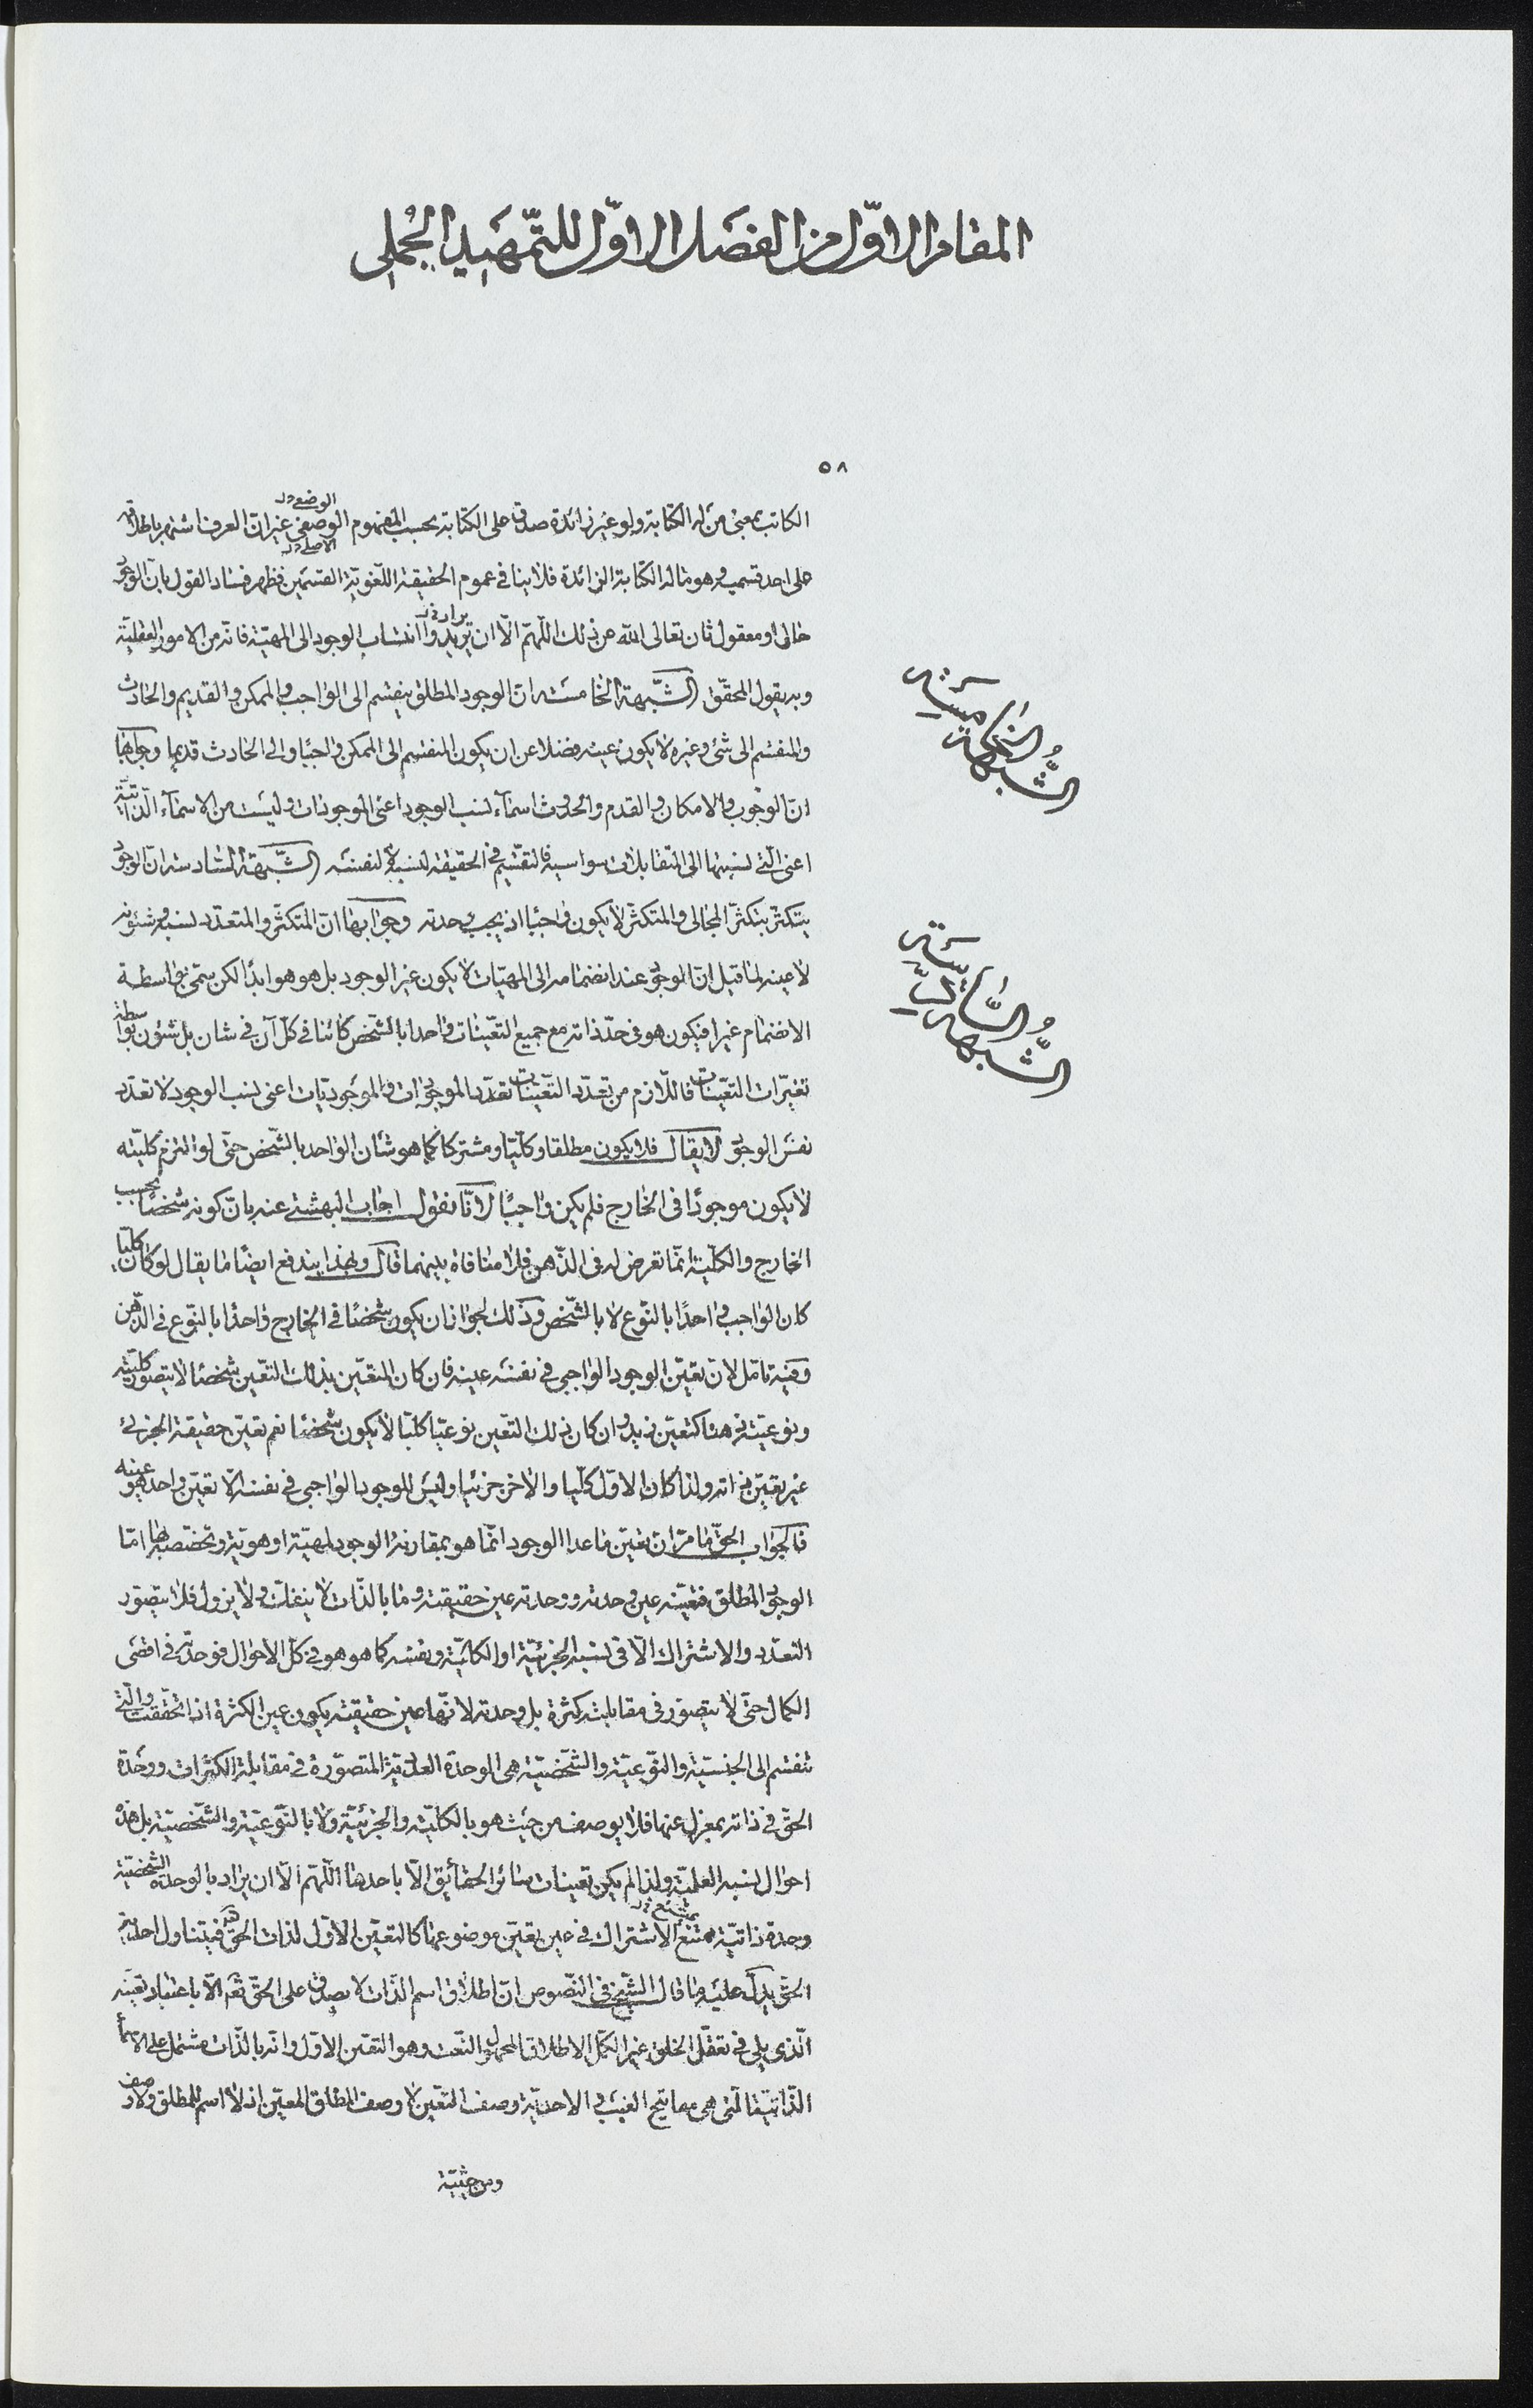 المقام الاوّل من الفصل الاوّل للتّمهيد الجُملى
٥٨
الوضعى خ ل
الكاتب بمعنى من له الكتابة ولو غير زائدة صدق على الكتابة بحسب المفهوم الوصفى غير انّ العرف اشتهر باطلاقه
الاصلى خ ل
على احد قسميه وهو ما له الكتابة الزائدة فلا ينافى عموم الحقيقة اللّغويّة القسمين فظهر فساد القول بانّ الوجود
يراد خ ل
حالى او معقول ثان تعالى الله عن ذلك اللّهمّ الّا ان يريدوا انتساب الوجود الى المهيّة فانّه من الامور العقليّة
وبه يقول المحقّق الشّبهة الخامسة ان الوجود المطلق ينقسم الى الواجب والممكن والقديم والحادث
والمنقسم الى شئ وغيره لا يكون عينه فضلا عن ان يكون المنقسم الى الممكن واجبًا والى الحادث قديما وجوابها
انّ الوجوب والامكان والقدم والحدوث اسمآء لنسب الوجود اعنى الموجودات وليست من الاسمآء الذّاتيّة
اعنى الّتى نسبتها الى المتقابلات سواسية فالتقسيم فى الحقيقة لنسبه لا لنفسه الشّبهة السّادسة انّ الوجود
يتكثّر بتكثّر المجالى والمتكثّر لا يكون واجبًا اذ يجب وحدته وجوابها انّ المتكثّر والمتعدّد نسبه وشئونه
لا عينه لما قيل انّ الموجود عند انضمامه الى المهيّات لا يكون غير الوجود بل هو هو ابدًا لكن سمّى بواسطة
الانضمام غيرا فيكون هو فى حدّ ذاته مع جميع التعيّنات واحدا بالشّخص كائنا فى كلّ آن فى شان بل شئون بواسطة
تغيّرات التعيّنات فاللّازم من تعدّد التعيّنات تعدّد الموجودات والموجوديّات اعنى نسب الوجود لا تعدّد
نفس الوجود لا يقال فلا يكون مطلقا وكليّا ومشتركا كما هو شان الواحد بالشّخص حتّى لو التزم كليّته
لا يكون موجودًا فى الخارج فلم يكن واجبًا لانّا نقول اجاب البهشتى عنه بانّ كونه شخصًا بحسب
الخارج والكليّة انّما تعرض له فى الذّهن فلا منافاة بينهما قال وبهذا يندفع ايضًا ما يقال لو كان كليّا
كان الواجب واحدًا بالنّوع لا بالشّخص وذلك لجواز ان يكون شخصًا فى الخارج واحدًا بالنّوع فى الذّهن
وفيه تامّل لانّ تعيّن الوجود الواجبى فى نفسه عينه فان كان المتعيّن بذلك التعيّن شخصًا لا يتصوّر كليّته
ونوعيّته ذهنًا كتعيّن زيد وان كان ذلك التعيّن نوعيّا كليّا لا يكون شخصًا نعم تعيّن حقيقة الجزئى
غير تعيّن ذاته ولذا كان الاوّل كليّا والآخر جزئيا وليس للوجود الواجبى فى نفسه الّا تعيّن واحد هو عينه
فالجواب الحقّ ما مرّ ان تعيّن ما عدا الوجود انّما هو بمقارنة الوجود لمهيّة او هويّة وتخصّصه بها امّا
الوجود المطلق فتعيّنه عين وحدته ووحدته عين حقيقته وما بالذّات لا ينفكّ ولا يزول فلا يتصوّر
التعدّد والاشتراك الّا فى نسبه الجزئيّة او الكليّة ونفسه كما هو هو فى كلّ الاحوال فوحدته فى اقصى
الكمال حتّى لا يتصوّر فى مقابلته كثرة بل وحدته لانّها عين حقيقته يكون عين الكثرة اذا تحقّقت والّتى
تنقسم الى الجنسيّة والنّوعيّة والشّخصيّة هى الوحدة العدديّة المتصوّرة فى مقابلة الكثرات ووحدة
الحقّ فى ذاته بمعزل عنها فلا يوصف من حيث هو بالكليّة والجزئيّة ولا بالنّوعيّة والشّخصيّة بل هذه
احوال نسبه العلميّة ولذا لم يكن تعينات سائر الحقائق الّا باحدها اللّهمّ الّا ان يراد بالوحدة الشّخصيّة
يمتنع خ ل
وحدة ذاتيّة ممتنع الاشتراك فى عين تعيّن موضوعها كالتعيّن الاوّل لذات الحقّ فيتناول احديّة
الحقّ يدلّ عليه ما قال الشّيخ فى النّصوص انّ اطلاق اسم الذّات لا يصدق على الحقّ تعم الّا باعتبار تعيّنه
الّذى يلى فى تعقّل الخلق غير الكمّل الاطلاق المجهول النّعت وهو التعيّن الاوّل وانّه بالذّات مشتمل على الاسمآء
الذّاتيّة الّتى هى مفاتيح الغيب والاحديّة وصف التعيّن لا وصف المطلق المعيّن اذ لا اسم للمطلق ولا وصف
ومن حيثيّة
الشّبهة الخامسة
الشّبهة السّادسة